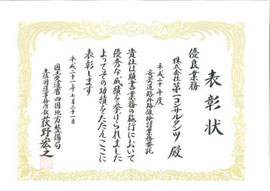 表彰状
優良業務
株式会社第一コンサルタンツ殿
平成二十年度
安芸道路外路線検討業務委託
貴社は頭書業務の施行において
優秀な成績を挙げられました
よってその功績をたたえここに
表彰します
平成二十一年七月二十一日
国土交通省四国地方整備局
土佐国道事務所長 荻野宏之